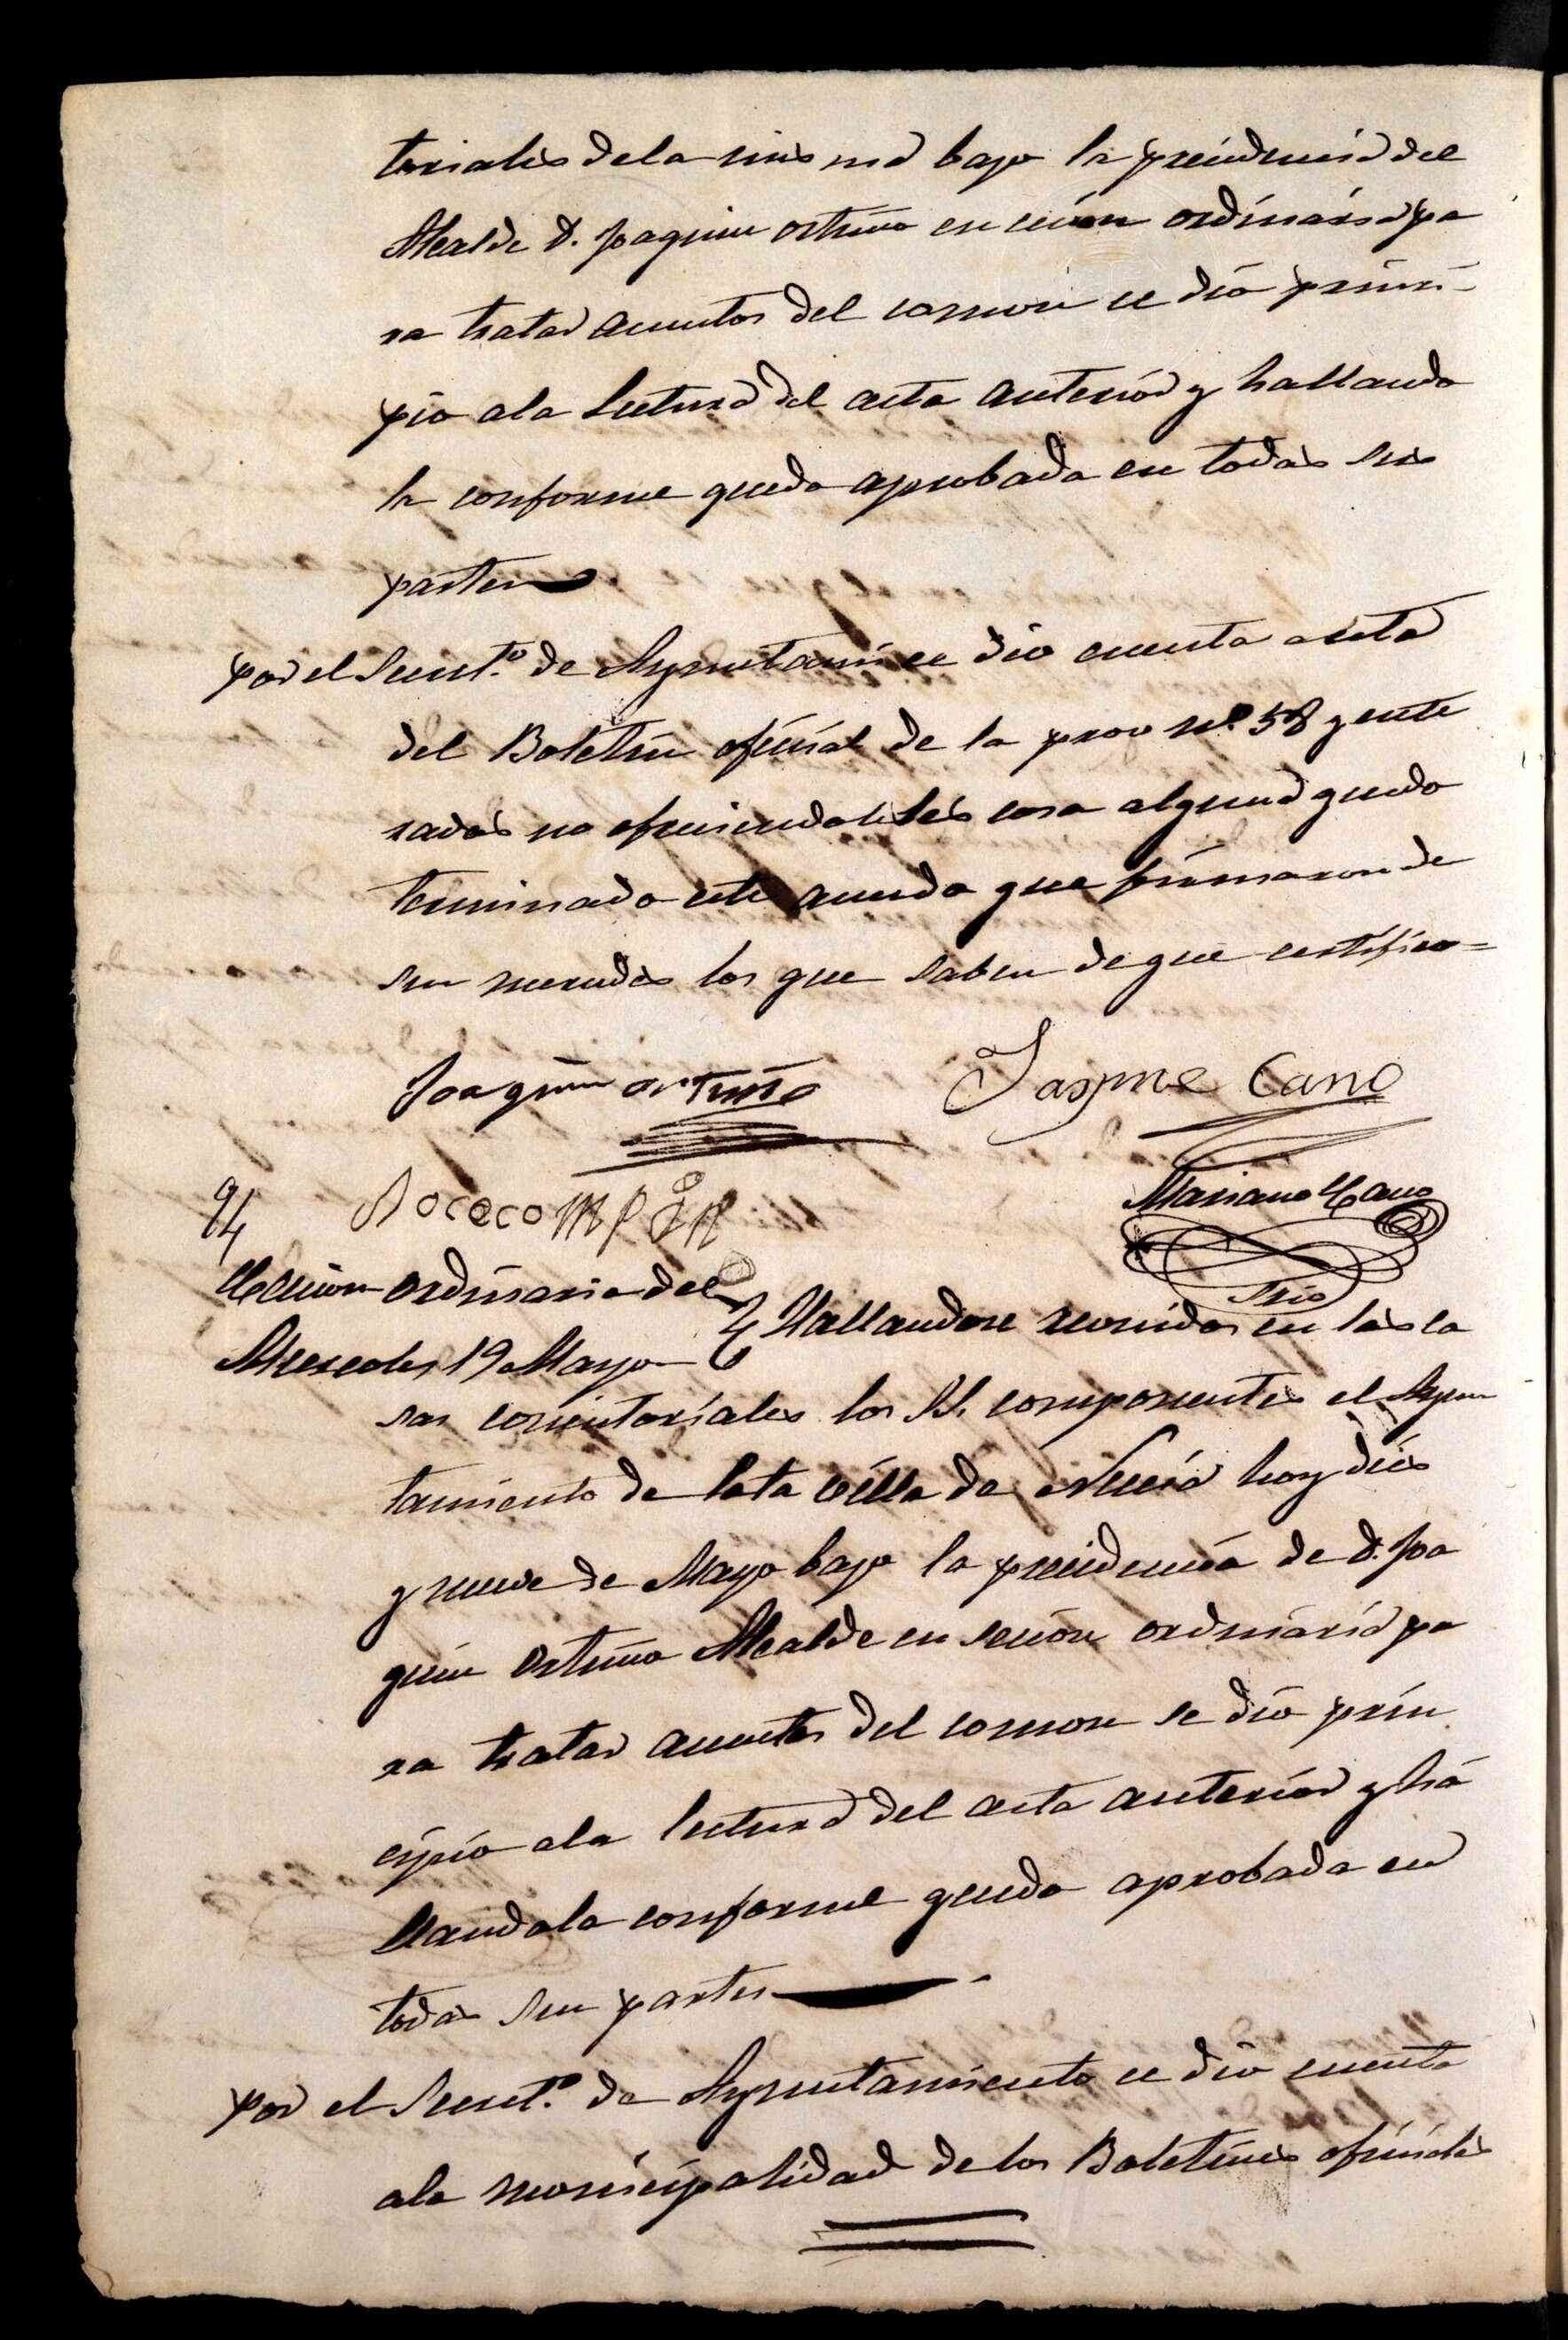 toriales dela mis ma bajo la precidencia del
Alcalde D. Joaquin ortuño en ceción ordinaria pa
ra tratar acuntos del comun ce dió princi-
pio ala Lectura del acta anterior y hallando
la conforme quedo aprobada en todas sus
partes
por el Secret.º de Ayuntami ce dio cuenta a esta
del Boletin oficial de la prov nº 58 y ente
rados no ofreciendoseles cosa alguna quedo
terminado este acuerdo que firmaron de
sus mercedes los que saben de que certifico=
Joaquin ortuño Jayme Cano
Mariano Cano
Srio
94
Cecion ordinaria del
Miercoles 19 Mayo
Hallandose reonidos en las ca
sas concistoriales los SS. componentes el Ayun
tamiento de Esta villa de Nucia hoy dies
y nueve de Mayo bajo la precidencia de D. Joa
quin Ortuño Alcalde en seción ordinaria pa
ra tratar acuntos del comon se dió prin
cipio ala lectura del acta anterior y há
llandola conforme quedo aprobada en
todas sus partes
por el Secret.º de Ayuntamiento ce dio cuenta
ala monicipalidad de los Boletines oficiales